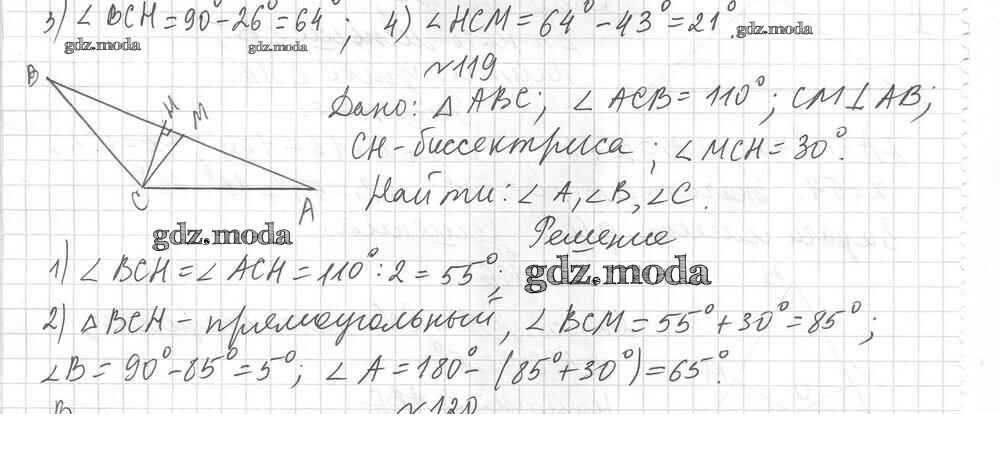 3) ∠BCH = 90° - 26° = 64°; 4) ∠HCM = 64° - 43° = 21°.
gdz.moda
gdz.moda
gdz.moda
№119
B
H
M
C
A
Дано: △ABC; ∠ACB = 110°; CM ⊥ AB;
CH - биссектриса; ∠MCH = 30°.
Найти: ∠A, ∠B, ∠C.
gdz.moda
Решение
1) ∠BCH = ∠ACH = 110° : 2 = 55°;
gdz.moda
2) △BCH - прямоугольный, ∠BCM = 55° + 30° = 85°;
∠B = 90° - 85° = 5°; ∠A = 180° - (85° + 30°) = 65°.
B
№120